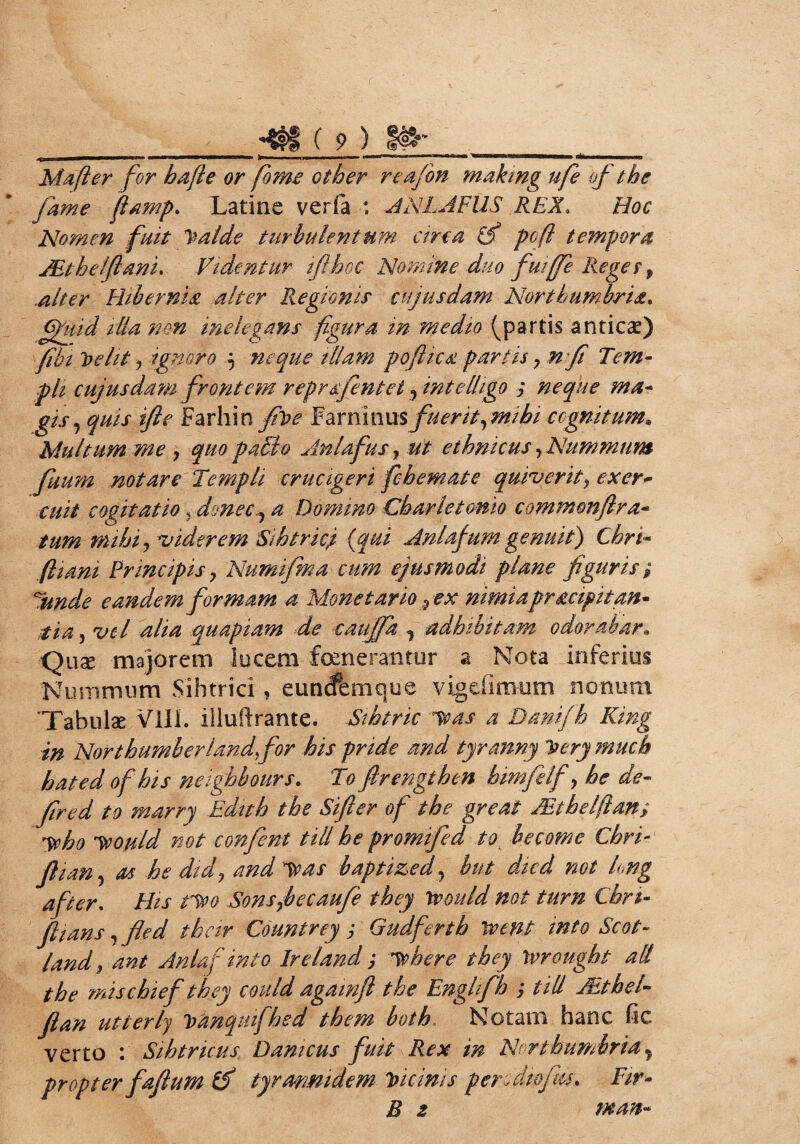 ( 9 )
Maſter for haſte or ſome other reaſon making uſe of the
ſame ſtamp. Latine verſa : ANLAFUS REX. Hoc
Nomen fuit valde turbulentum circa & poſt tempora
Æthelſtani. Videntur iſthoc Nomine duo fuiſſe Reges,
alter Hiberniæ alter Regionis cujusdam Northumbriæ.
Quid illa non inelegans figura in medio (partis anticæ)
ſibi velit, ignoro ; neque illam poſticæ partis, niſi Tem-
pli cujusdam frontem repræſentet, intelligo ; neque ma-
gis, quis iſte Farhin ſive Farninus fuerit, mihi cognitum.
Multum me, quo pacto Anlafus, ut ethnicus, Nummum
ſuum notare Templi crucigeri ſchemate quiverit, exer-
cuit cogitatio, donec, a Domino Charletonio commonſtra-
tum mihi, viderem Sihtrici (qui Anlafum genuit) Chri-
ſtiani Principis, Numiſma cum ejusmodi plane figuris;
unde eandem formam a Monetario, ex nimia præcipitan-
tia, vel alia quapiam de cauſſa, adhibitam odorabar.
Quæ majorem lucem fœnerantur a Nota inferius
Nummum Sihtrici, eundemque vigeſimum nonum
Tabulæ VIII. illuſtrante. Sihtric was a Daniſh King
in Northumberland, for his pride and tyranny very much
hated of his neighbours. To ſtrengthen himſelf, he de-
ſired to marry Edith the Siſter of the great Æthelſtan;
who would not conſent till he promiſed to become Chri-
ſtian, as he did, and was baptized, but died not long
after. His two Sons, becauſe they would not turn Chri-
ſtians, fled their Countrey ; Gudferth went into Scot-
land, ant Anlaf into Ireland ; where they wrought all
the mischief they could againſt the Engliſh ; till Æthel-
ſtan utterly vanquiſhed them both. Notam hanc ſic
verto : Sihtricus Danicus fuit Rex in Northumbria,
propter faſtum & tyrannidem vicinis perodioſus. Fir-
B 2 man-